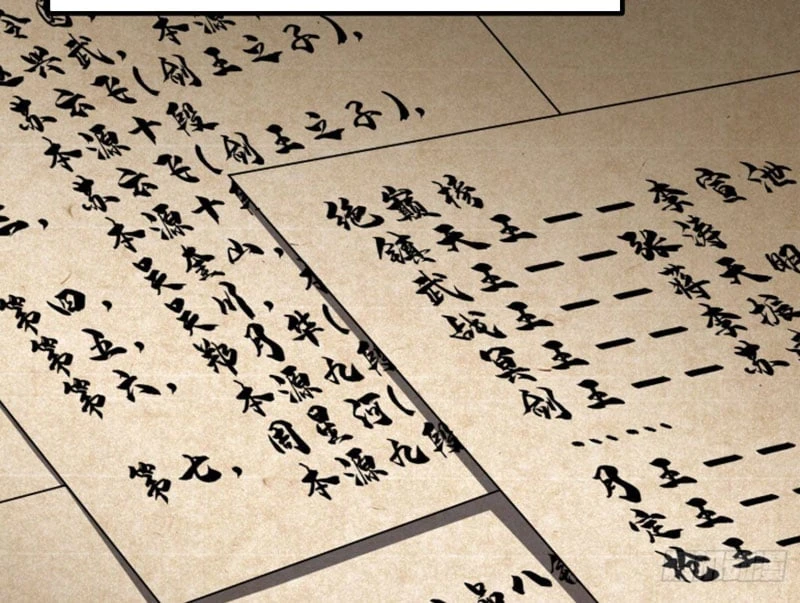 本源
兴武，
苏云飞（剑王之子），
本源十段
苏云飞（剑王之子），
本源十
三、
第四、吴奎山，
第五、吴川，
第六、郑月华（
本源九段
第七、周星河（
本源九段
绝巅榜
镇天王———李宣池
武王———张涛
战王———蒋天明
冥王———李振
剑王———苏
……
月王——
定王——
王—
品八